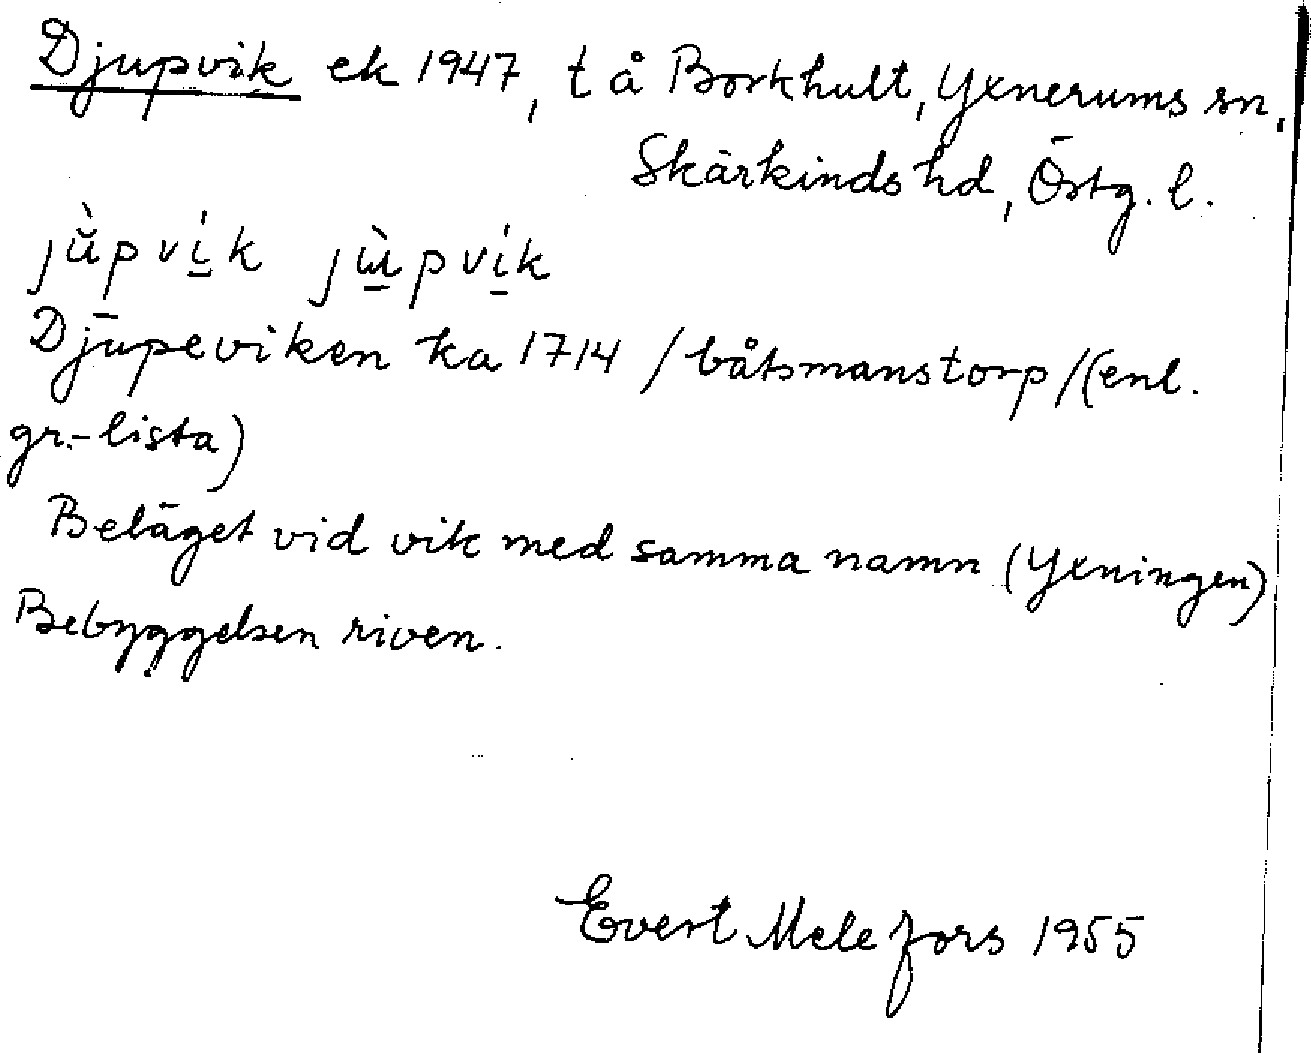 Djupvik ek 1947, t å Borkhult, Yxnerums sn,
Skärkinds hd, Östg. l.
jŭ̀pví̱k jɯ̱̀pví̱k
Djupeviken ka 1714 /båtsmanstorp/(enl.
gr.-lista)
Beläget vid vik med samma namn (Yxningen)
Bebyggelsen riven.
Evert Melefors 1955